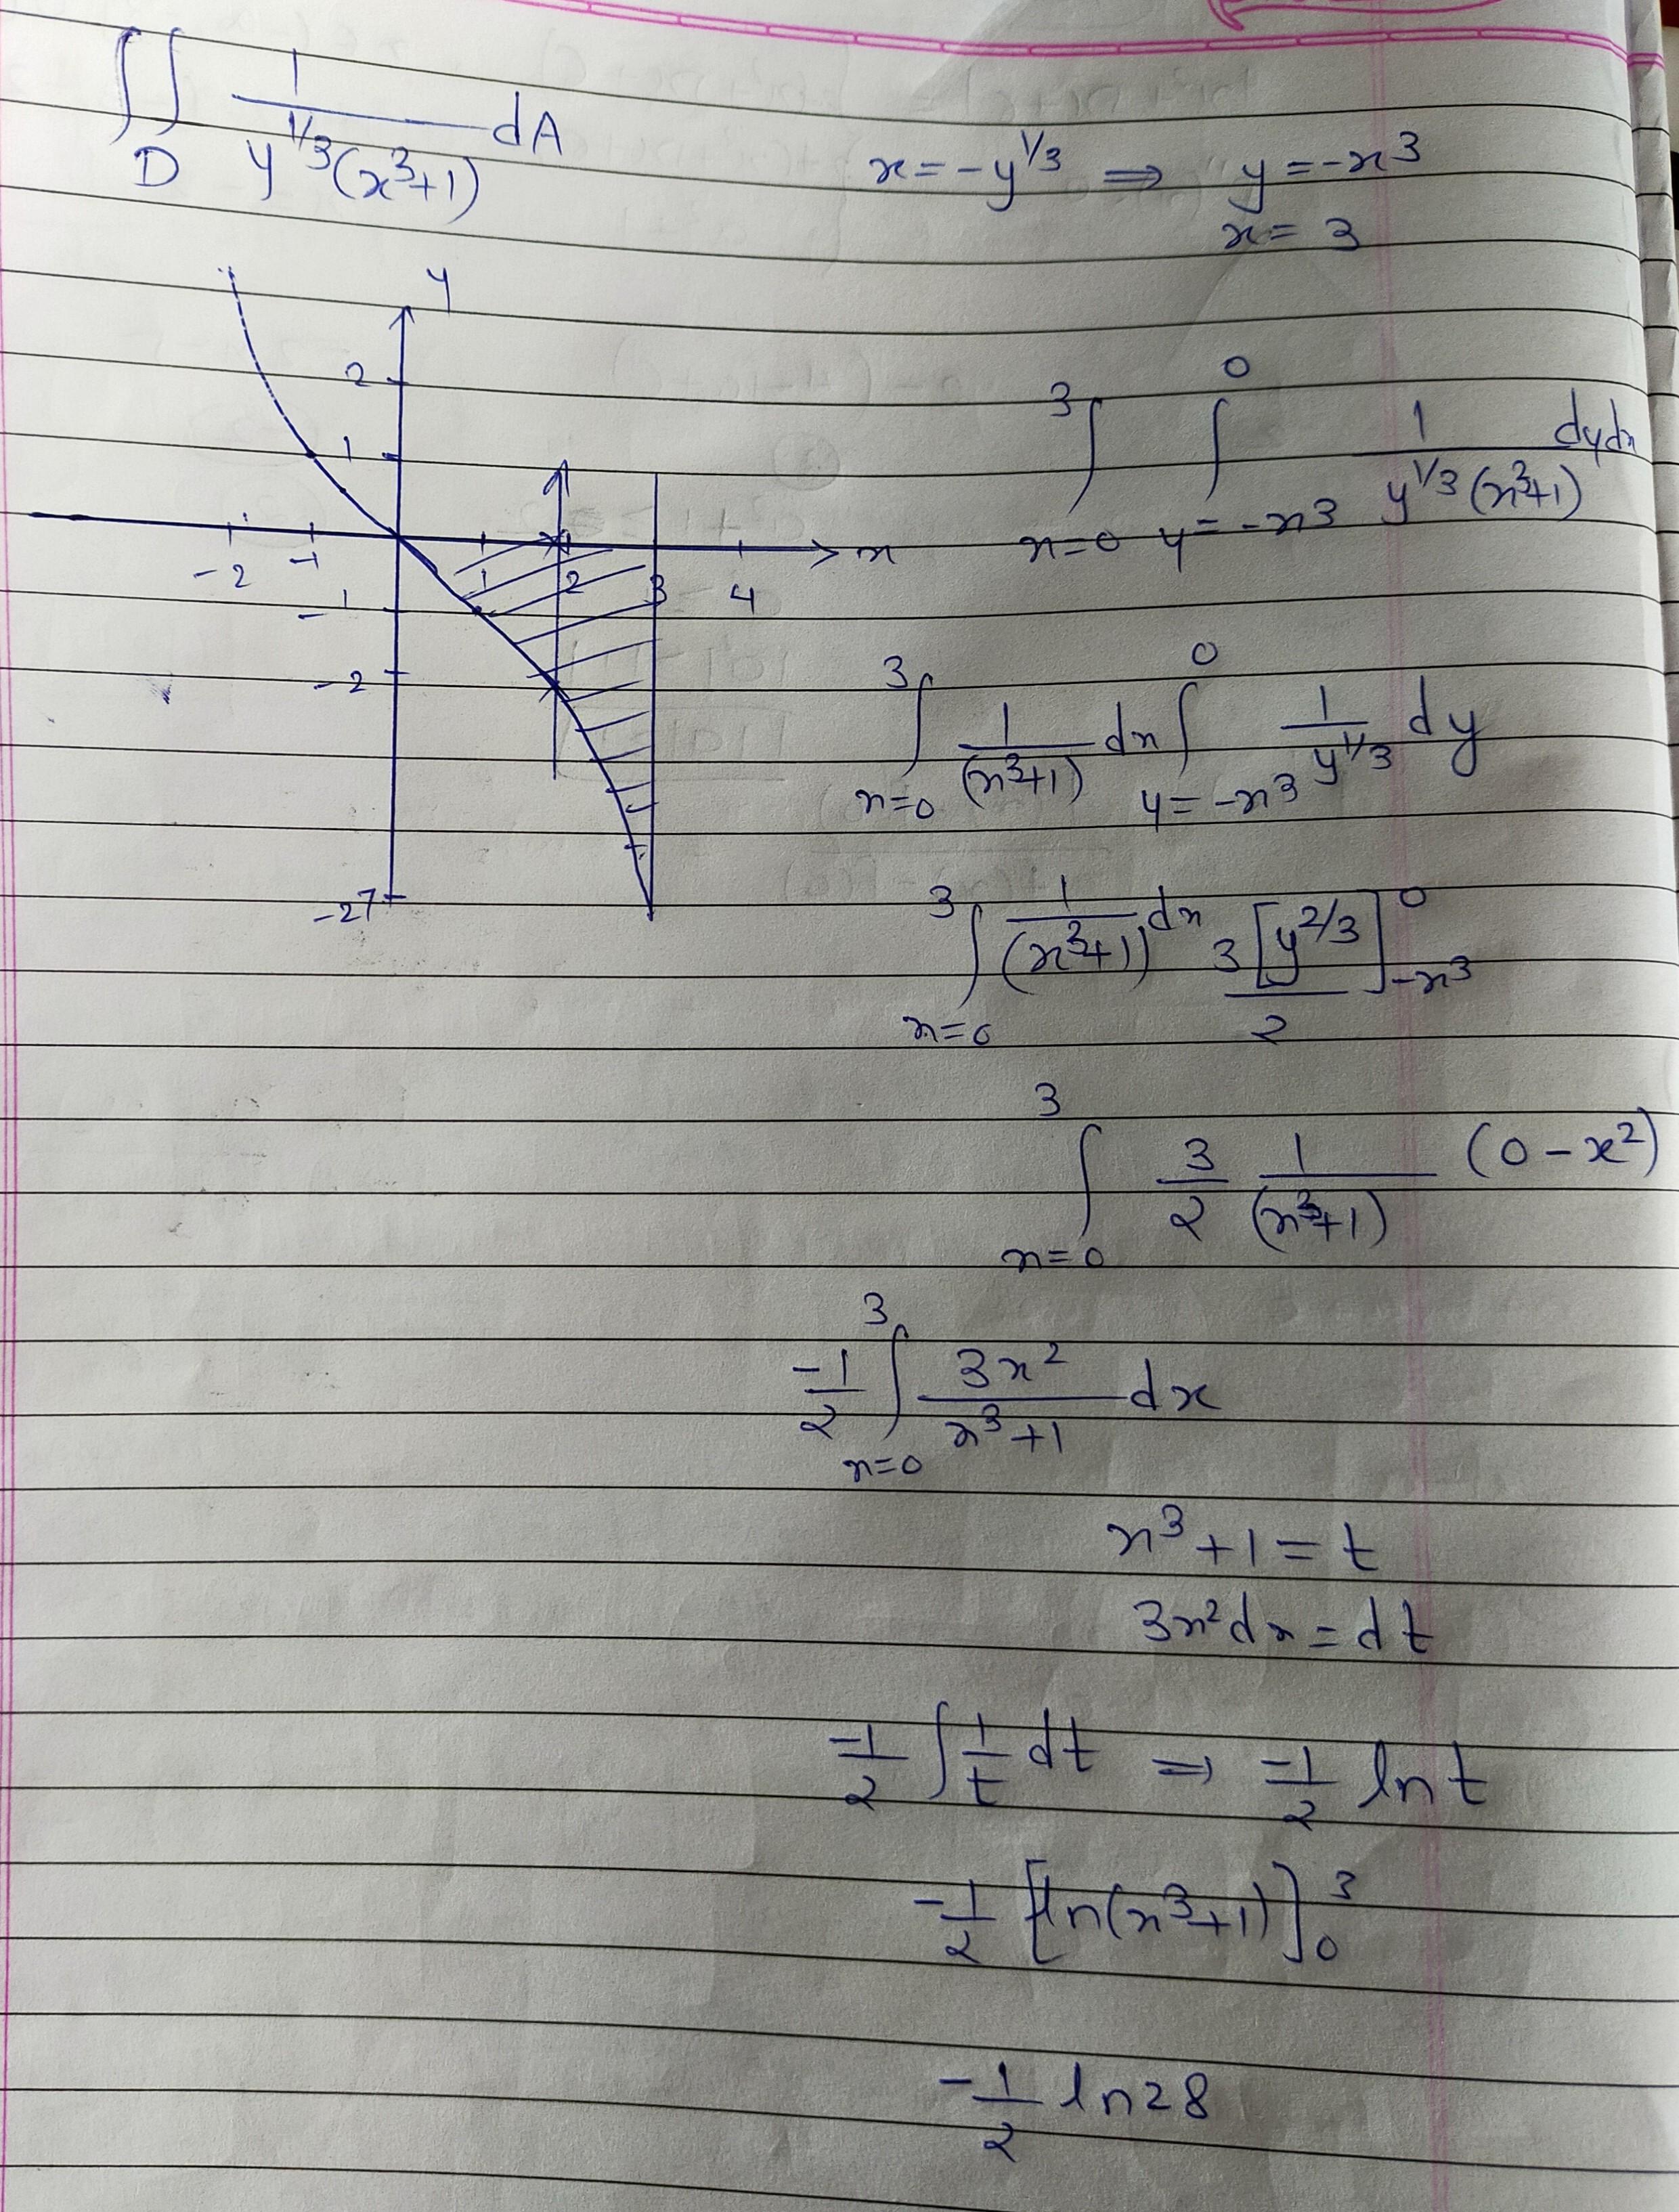 ∬_D 1/(y^{1/3}(x^3+1)) dA
x = -y^{1/3} ⇒ y = -x^3
x = 3
y
2
1
-2 -1 1 2 3 4 x
-1
-2
-27
∫_{x=0}^{3} ∫_{y=-x^3}^{0} 1/(y^{1/3}(x^3+1)) dydx
∫_{x=0}^{3} 1/(x^3+1) dx ∫_{y=-x^3}^{0} 1/y^{1/3} dy
∫_{x=0}^{3} 1/(x^3+1) dx 3[y^{2/3}]/2 _{-x^3}^{0}
∫_{x=0}^{3} 3/2 1/(x^3+1) (0-x^2)
-1/2 ∫_{x=0}^{3} 3x^2/(x^3+1) dx
x^3+1 = t
3x^2dx = dt
-1/2 ∫ 1/t dt ⇒ -1/2 ln t
-1/2 [ln(x^3+1)]_0^3
-1/2 ln 28